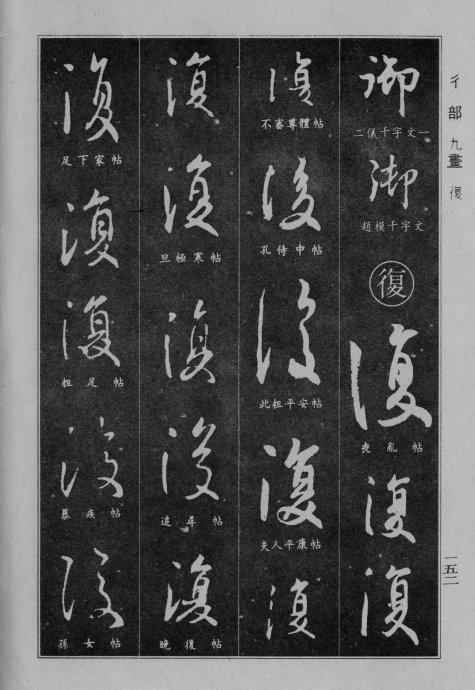 彳部 九畫 復
御
二儀千字文一
御
趙模千字文
復
復
喪亂帖
復
復
復
不審尊體帖
復
孔侍中帖
復
此粗平安帖
復
夫人平康帖
復
復
復
旦極寒帖
復
復
追尋帖
復
晚復帖
復
足下家帖
復
復
粗足帖
復
暴疾帖
復
孫女帖
一五二